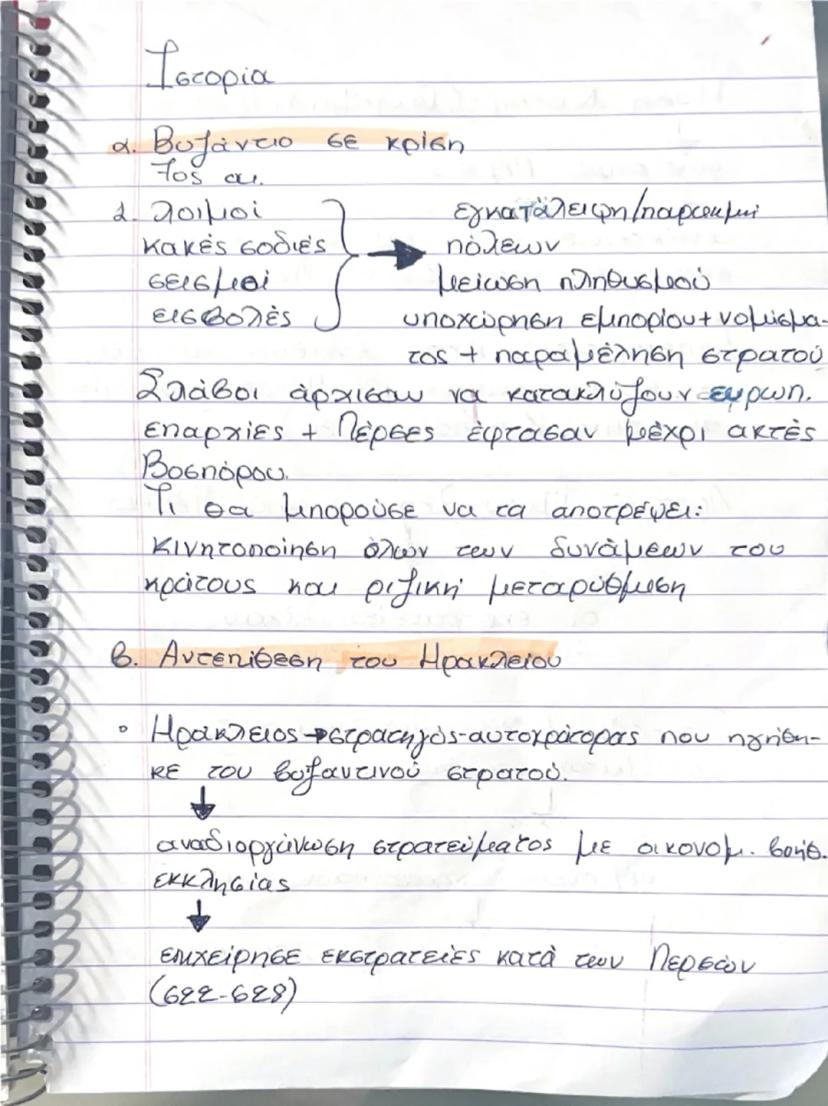 Ιστορία
α. Βυζάντιο σε κρίση
7ος αι.
1. λοιμοί
κακές σοδιές
σεισμοί
εισβολές
εγκατάλειψη/παρακμή
πόλεων
μείωση πληθυσμού
υποχώρηση εμπορίου + νομίσμα-
τος + παραμέληση στρατού
Σλάβοι άρχισαν να κατακλύζουν ευρωπ.
επαρχίες + Πέρσες έφτασαν μέχρι ακτές
Βοσπόρου.
Τι θα μπορούσε να τα αποτρέψει:
κινητοποίηση όλων των δυνάμεων του
κράτους και ριζική μεταρύθμιση
β. Αντεπίθεση του Ηρακλείου
Ηράκλειος → στρατηγός-αυτοκράτορας που ηγήθη-
κε του βυζαντινού στρατού.
αναδιοργάνωση στρατεύματος με οικονομ. βοήθ.
εκκλησίας
επιχείρησε εκστρατείες κατά των Περσών
(622-628)